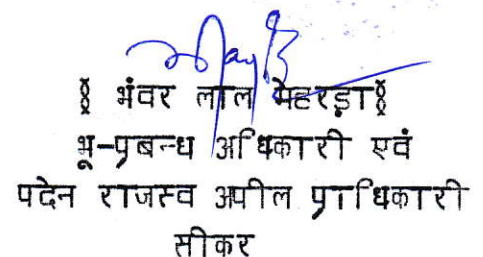 § भंवर लाल मेहरड़ा§
भू-प्रबन्ध अधिकारी एवं
पदेन राजस्व अपील प्राधिकारी
सीकर